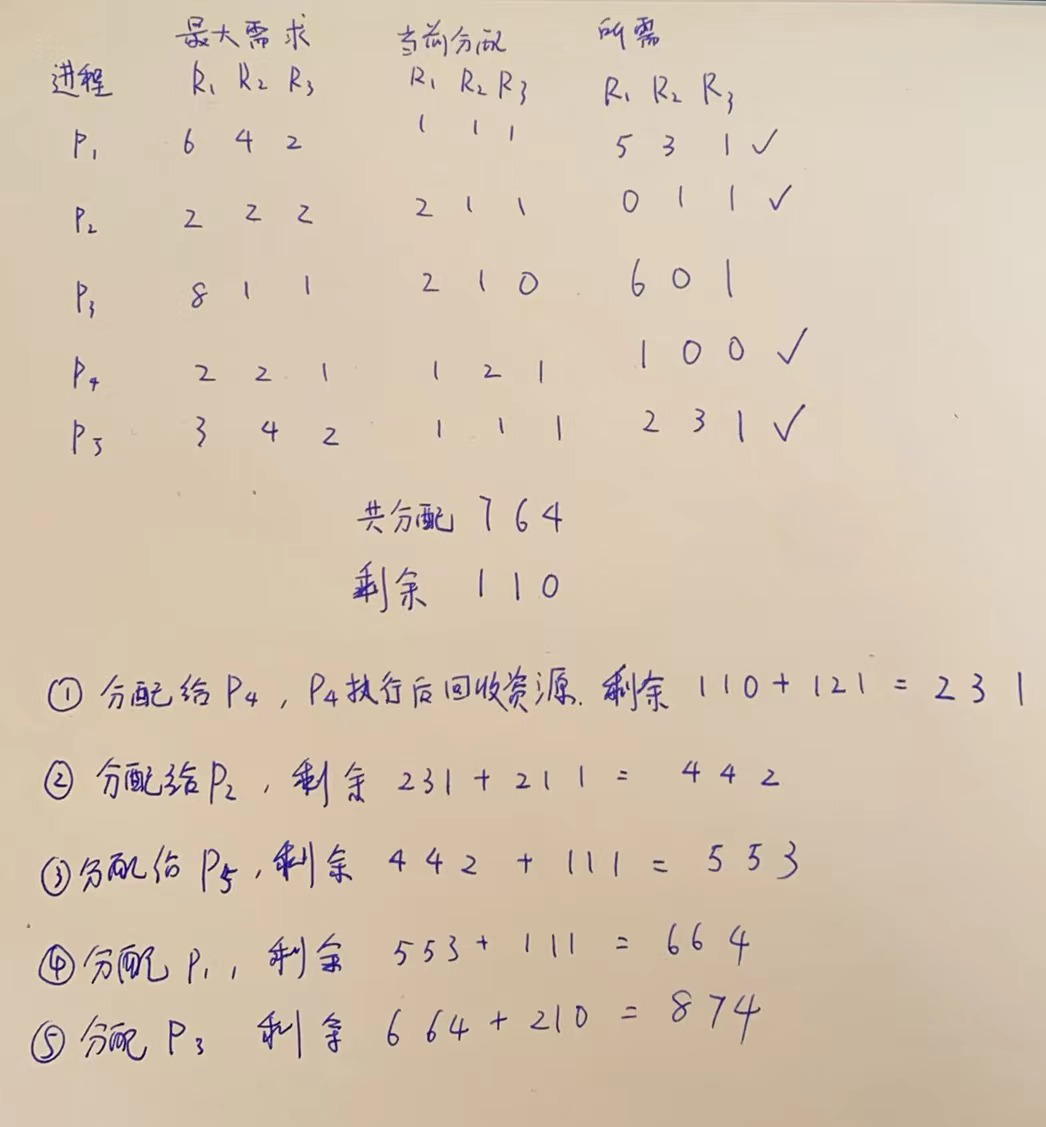 最大需求 当前分配 所需
进程 R₁ R₂ R₃ R₁ R₂ R₃ R₁ R₂ R₃
P₁ 6 4 2 1 1 1 5 3 1 ✓
P₂ 2 2 2 2 1 1 0 1 1 ✓
P₃ 8 1 1 2 1 0 6 0 1
P₄ 2 2 1 1 2 1 1 0 0 ✓
P₅ 3 4 2 1 1 1 2 3 1 ✓
共分配 7 6 4
剩余 1 1 0
① 分配给P₄，P₄执行后回收资源. 剩余 110 + 121 = 2 3 1
② 分配给P₂，剩余 231 + 211 = 4 4 2
③ 分配给 P₅，剩余 4 4 2 + 111 = 5 5 3
④ 分配 P₁，剩余 553 + 111 = 6 6 4
⑤ 分配 P₃ 剩余 6 6 4 + 210 = 8 7 4